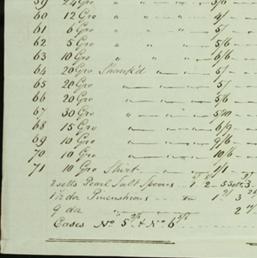 59 24 Gro " " " 3/6
60 12 Gro " " " 4/-
61 6 Gro " " " 5/-
62 5 Gro " " " 5/6 -
63 10 Gro " " " 6/6 -
64 20 Gro Shank'd 5/-
65 20 Gro " 5/-
66 20 Gro " 5/6 -
67 30 Gro " 5/10 -
68 15 Gro " 6/9 -
69 10 Gro " 9/6 -
70 10 Gro " 10/6 -
71 10 Gro Shirt 1/1 -
2 setts Pearl Salt Spoons 1 2 - 5 Setts 3
1½ dz 3
9 dz 2
Cases No 5 & No 6